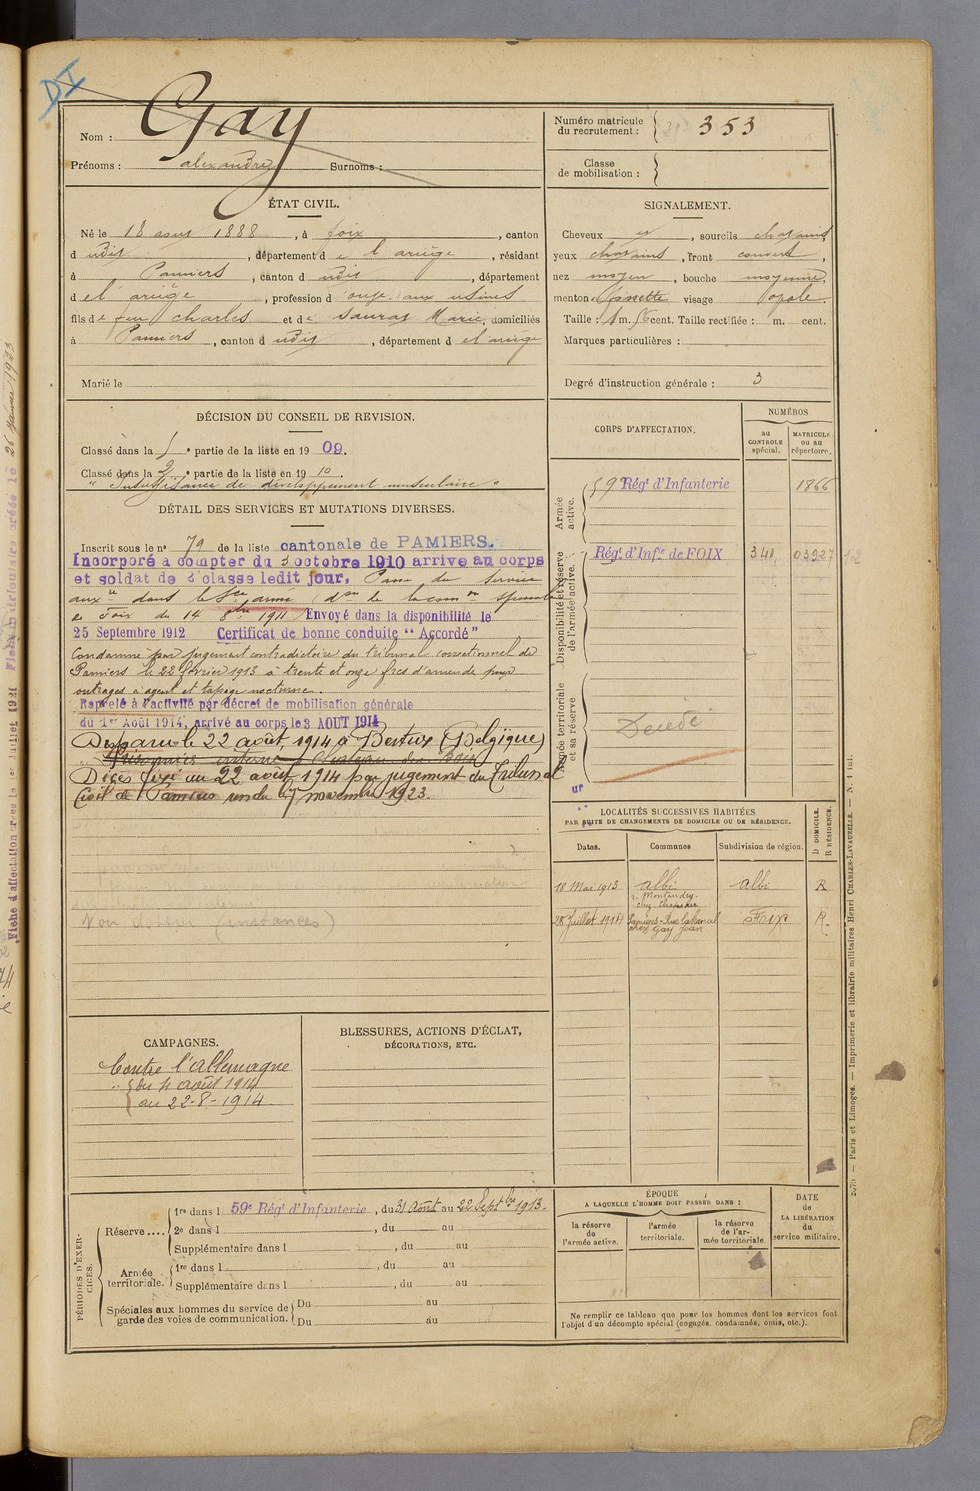 DI
Nom : Gay
Prénoms : alexandre Surnoms :
Numéro matricule du recrutement : 353
Classe de mobilisation :
ÉTAT CIVIL.
Né le 18 aout 1888, à foix, canton
d udit, département de l'ariège, résidant
à Pamiers, canton d udit, département
de l'ariège, profession d ouv. aux usines
fils de feu Charles et de Saurat Marie, domiciliés
à Pamiers, canton d udit, département de l'ariège
Marié le
SIGNALEMENT.
Cheveux et, sourcils chatains
yeux chatains, front couvert,
nez moyen, bouche moyenne,
menton fossette visage ovale.
Taille : 1 m. 56 cent. Taille rectifiée : m. cent.
Marques particulières :
Degré d'instruction générale : 3
DÉCISION DU CONSEIL DE REVISION.
Classé dans la 5e partie de la liste en 1909.
Classé dans la 2e partie de la liste en 1910.
" Insuffisance de développement musculaire "
DÉTAIL DES SERVICES ET MUTATIONS DIVERSES.
Inscrit sous le no 79 de la liste cantonale de PAMIERS.
Incorporé à compter du 3 octobre 1910 arrivé au corps
et soldat de 2e classe ledit jour. Passé du service
armé dans le Sce
de Foix du 14 8bre 1911 Envoyé dans la disponibilité le
25 Septembre 1912 Certificat de bonne conduite "Accordé"
Condamné par jugement contradictoire du tribunal correctionnel de
Pamiers le 22 février 1913 à trente et onze frcs d'amende pour
outrages à agent et tapage nocturne.
Rappelé à l'activité par décret de mobilisation générale
du 1er Août 1914, arrivé au corps le 3 AOUT 1914
Disparu le 22 août 1914 à Bertrix (Belgique)
Prisonnier interné
Décès fixé au 22 août 1914 par jugement du Tribunal
Civil de Pamiers rendu le 7 novembre 1923.
CORPS D'AFFECTATION.
NUMÉROS
au CONTROLE spécial.
MATRICULE ou au répertoire.
Armée active.
59e Régt d'Infanterie 1866
Disponibilité et réserve de l'armée active.
Régt d'Infie de FOIX 341 03927
Armée territoriale et sa réserve
Décédé
LOCALITÉS SUCCESSIVES HABITÉES
PAR SUITE DE CHANGEMENTS DE DOMICILE OU DE RÉSIDENCE.
Dates. Communes Subdivision de région. D DOMICILE. R RÉSIDENCE.
18 Mai 1913 albi albi R
28 Juillet 1914 Pamiers - Rue Lakanal chez Gay Jean Foix R.
CAMPAGNES.
Contre l'Allemagne
du 4 août 1914
au 22-8-1914
BLESSURES, ACTIONS D'ÉCLAT,
DÉCORATIONS, ETC.
PÉRIODES D'EXERCICES.
Réserve.... 1re dans l 59e Régt d'Infanterie, du 31 Août au 22 Septbre 1913.
2e dans l , du au
Supplémentaire dans l , du au
Armée territoriale. 1re dans l , du au
Supplémentaire dans l , du au
Spéciales aux hommes du service de garde des voies de communication. Du au
Du au
ÉPOQUE
A LAQUELLE L'HOMME DOIT PASSER DANS :
la réserve de l'armée active.
l'armée territoriale.
la réserve de l'armée territoriale
DATE de LA LIBÉRATION du service militaire.
Ne remplir ce tableau que pour les hommes dont les services font
l'objet d'un décompte spécial (engagés, condamnés, omis, etc.).
Paris et Limoges. — Imprimerie et librairie militaires Henri CHARLES-LAVAUZELLE.